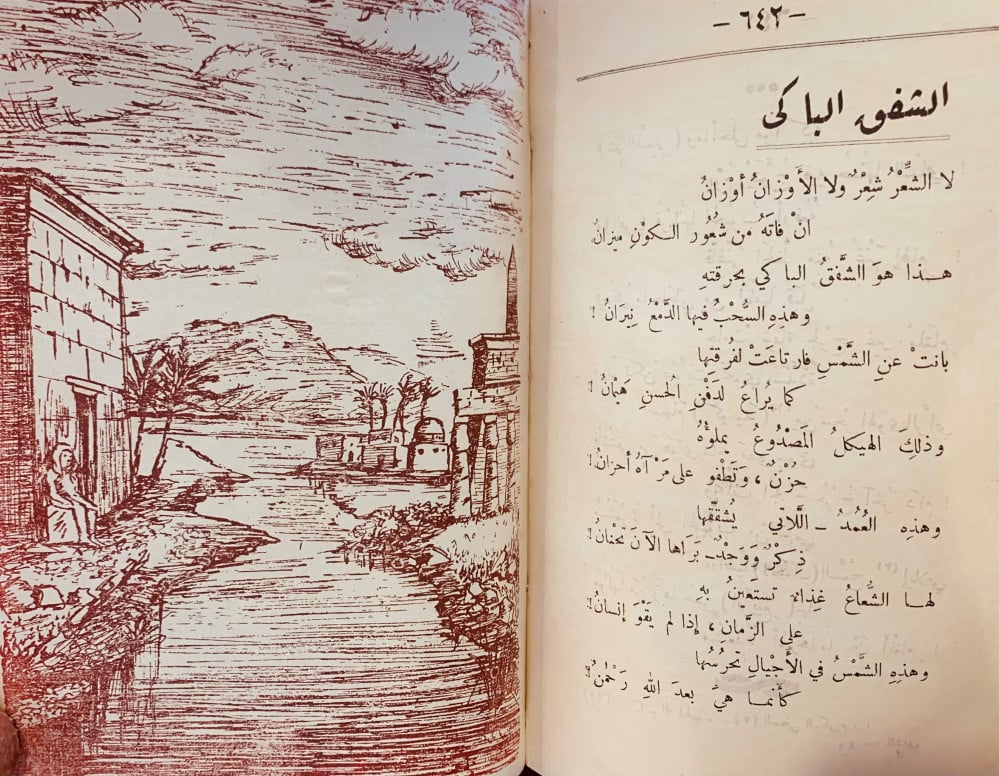 -٦٤٢-
الشفق الباكى
لا الشِّعْرُ شِعْرٌ ولا الأَوْزانُ أَوْزانُ
انْ فاتَهُ من شُعُور الكوْنِ ميزانُ
هذا هوَ الشَّفَقُ الباكي بحرقته
وهذِهِ السُّحْبُ فيها الدَّمْعُ نِيرَانُ!
بانتْ عنِ الشَّمْسِ فارتاعَتْ لفُرقتها
كما يُراعُ لدَفْنِ الحُسنِ هَيْمانُ!
وذلِكَ الهيكلُ المَصْدُوعُ يملوُّهُ
حُزْنٌ، وَتَطْفو على مَرْآهُ أحزانُ!
وهذِهِ العُمُدُ ــ اللَّاتي يُشقِّقها
ذِكرٌ وَوَجْدٌ ــ بَرَاها الآنَ تَحْنانُ!
لها الشُّعاعُ غِذاءٌ تستعينُ بهِ
على الزَّمان، إذا لم يَقْوَ إنسانُ!
وهذِهِ الشَّمْسُ في الأَجْيالِ تحرُسُها
كأنما هيَ بعدَ اللهِ رَحْمٰنُ!